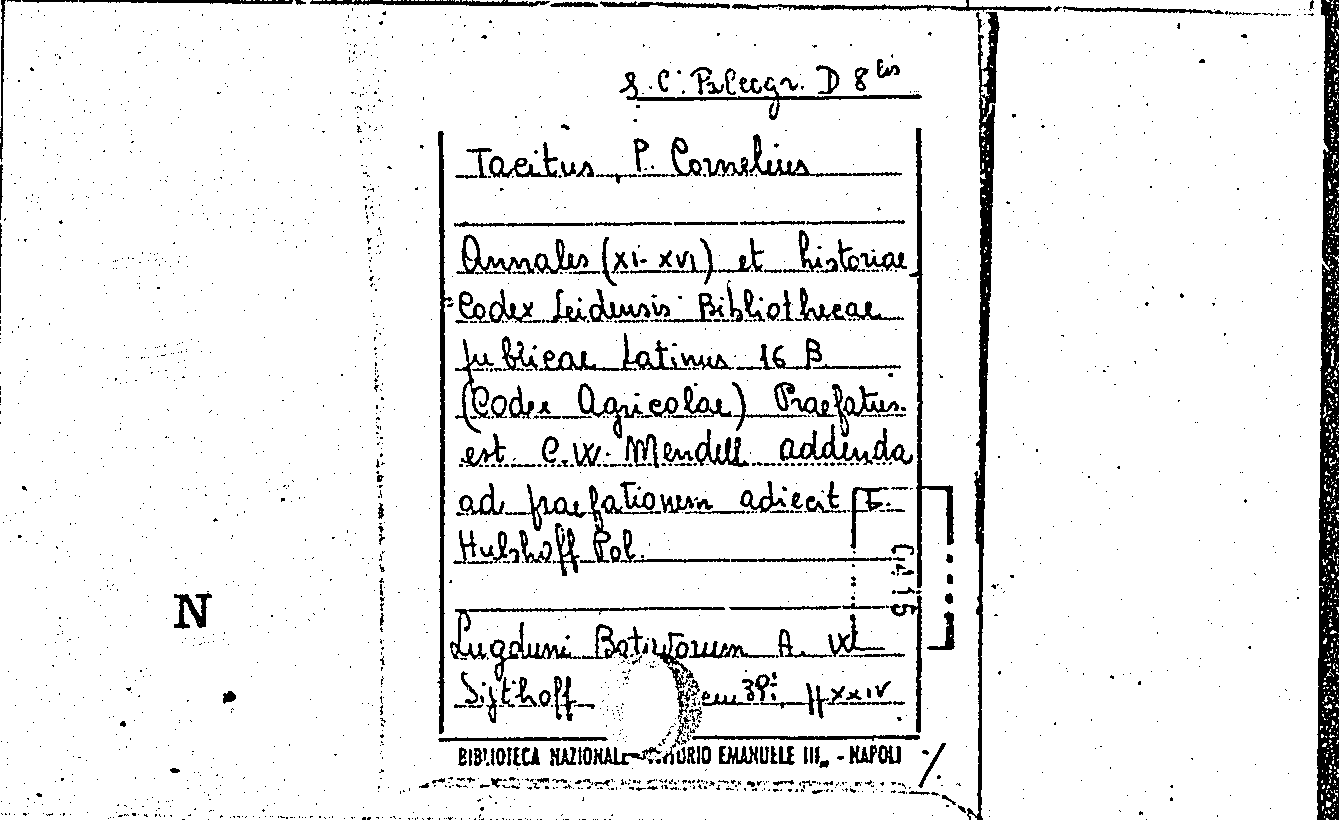 S. C. Paleogr. D 8 bis
Tacitus, P. Cornelius
Annales (XI-XVI) et historiae
Codex Leidensis Bibliothecae
publicae Latinus 16 B
(Codex Agricolae) Praefatus
est C.W. Mendell addenda
ad praefationem adiecit E.
Hulshoff Pol.
0415
N
Lugduni Batavorum A. W.
Sijthoff cm 39; pp XXIV
BIBLIOTECA NAZIONALE EMANUELE III„ - NAPOLI